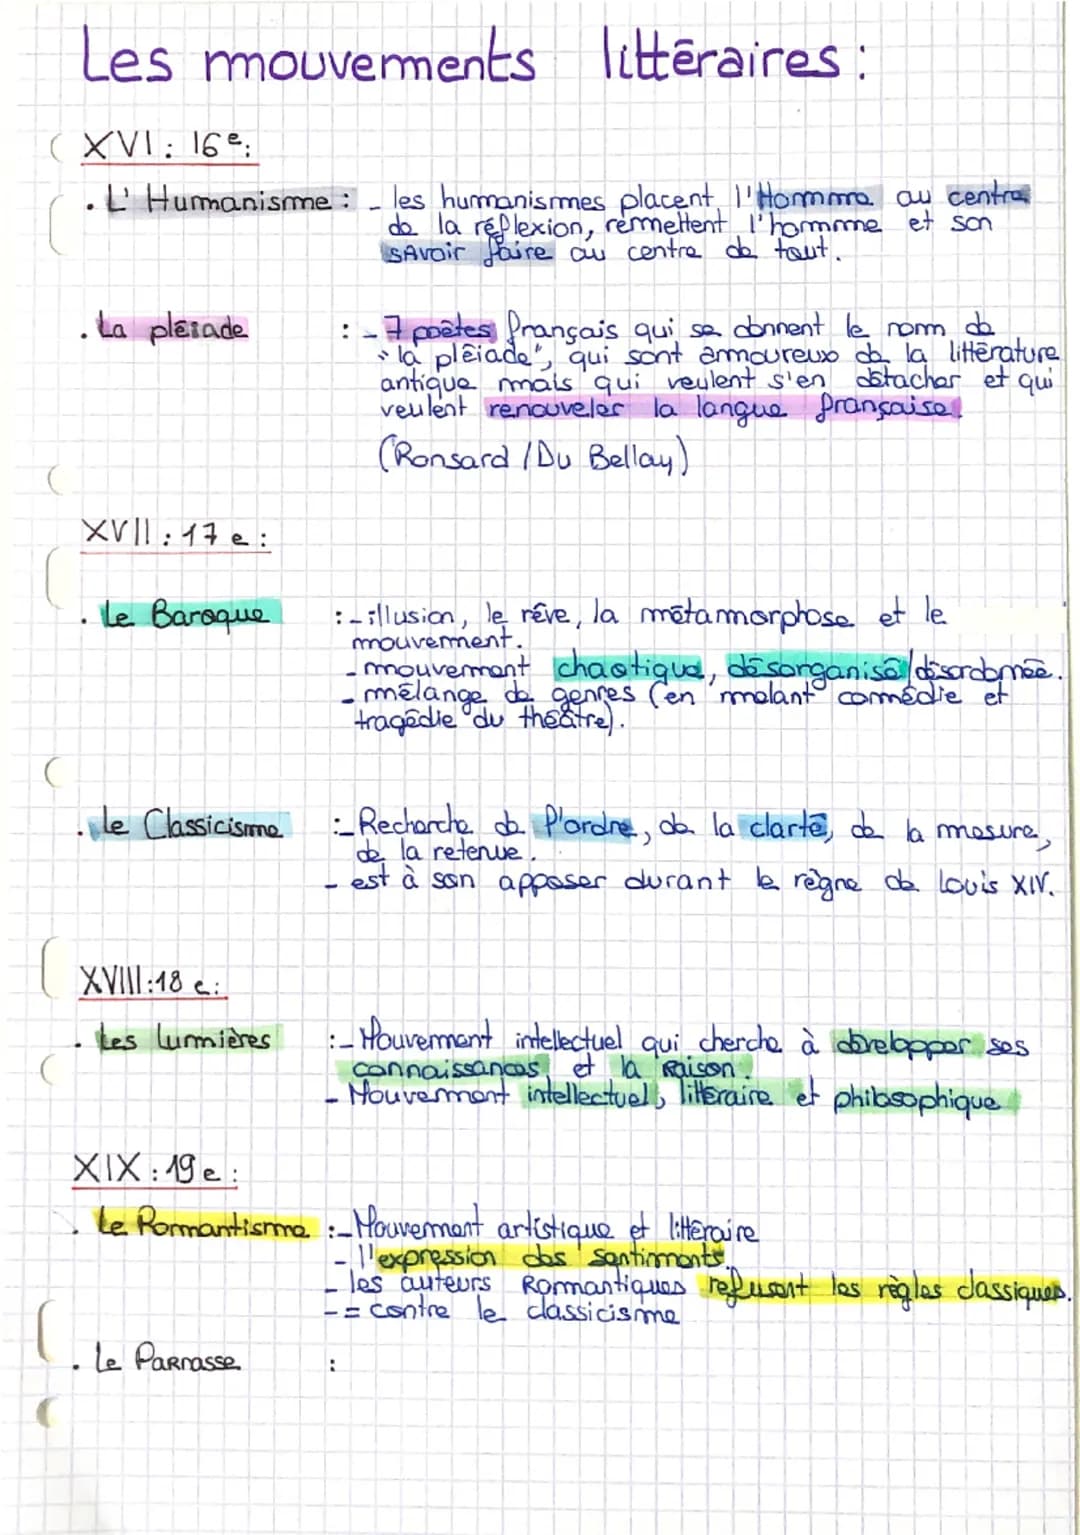 Les mouvements littéraires :
XVI : 16e :
. L'Humanisme : - les humanismes placent l'Homme au centre
de la réflexion, remettent l'homme et son
savoir faire au centre de tout.
. La pléiade : - 7 poêtes français qui se donnent le nom de
"la plêiade", qui sont amoureux de la littérature
antique mais qui veulent s'en détacher et qui
veulent renouveler la langue française.
(Ronsard / Du Bellay)
XVII : 17 e :
. Le Baroque : - illusion, le rêve, la métamorphose et le
mouvement.
- mouvement chaotique, désorganisé/désordonnée.
- mélange de genres (en melant comédie et
tragédie du théâtre).
. Le Classicisme : - Recherche de l'ordre, de la clarté, de la mesure,
de la retenue.
- est à son apposer durant le règne de Louis XIV.
XVIII : 18 e :
. Les Lumières : - Mouvement intellectuel qui cherche à développer ses
connaissances et la raison.
- Mouvement intellectuel, littéraire et philosophique
XIX : 19 e :
. Le Romantisme : - Mouvement artistique et littéraire
- l'expression des sentiments.
- les auteurs Romantiques refusent les règles classiques.
- = contre le classicisme
. Le Parnasse :